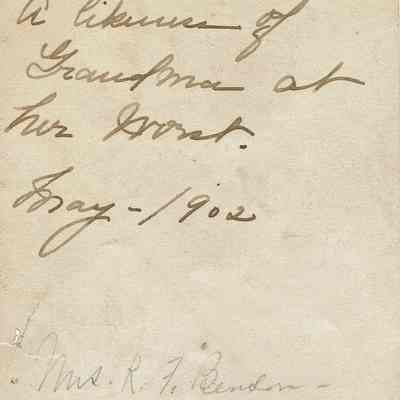 A likeness of
Grandma at
her Worst.
May - 1902
Mrs. R. F. Bendon -